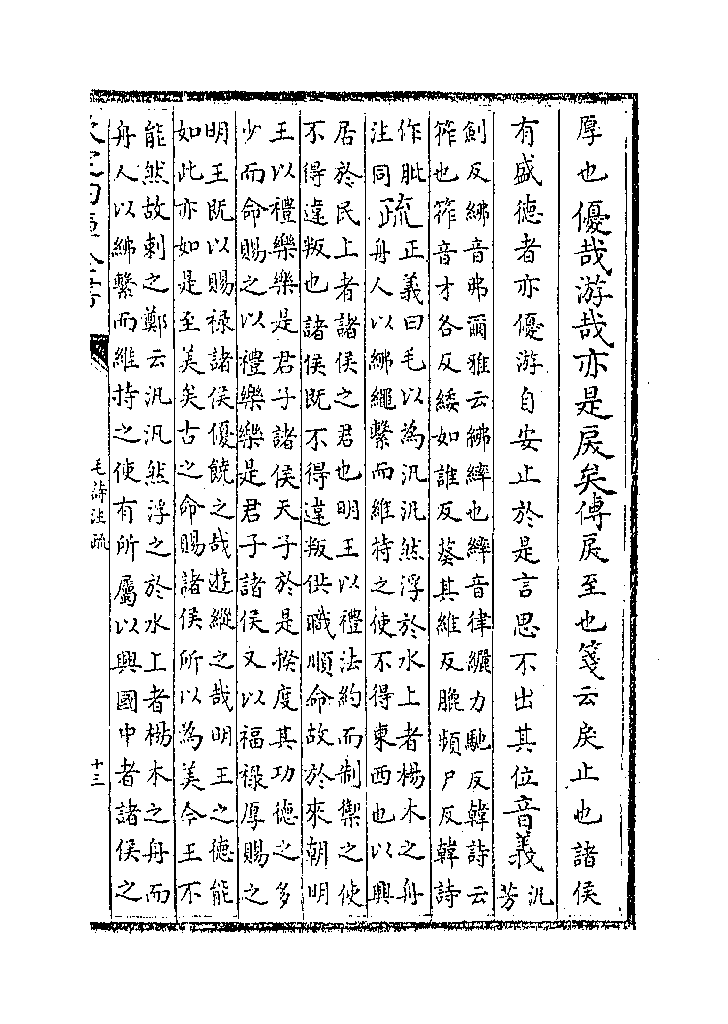 厚也優哉游哉亦是戾矣傅戾至也箋云戾止也諸侯
有盛德者亦優游自安止於是言思不出其位音義汎
芳
劒反紼音弗爾雅云紼繂也繂音律纚力馳反韓詩云
筰也筰音才各反緌如誰反葵其維反膍頻尸反韓詩
作肶
注同
疏
正義曰毛以為汎汎然浮於水上者楊木之舟
舟人以紼繩繫而維持之使不得東西也以興
居於民上者諸侯之君也明王以禮法約而制禦之使
不得違叛也諸侯既不得違叛供職順命故於來朝明
王以禮樂樂是君子諸侯天子於是揆度其功德之多
少而命賜之以禮樂樂是君子諸侯又以福祿厚賜之
明王既以賜祿諸侯優饒之哉遊縱之哉明王之德能
如此亦如是至美矣古之命賜諸侯所以為美今王不
能然故刺之鄭云汎汎然浮之於水上者楊木之舟而
舟人以紼繫而維持之使有所屬以興國中者諸侯之
欽定四庫全書
毛詩注疏
十三